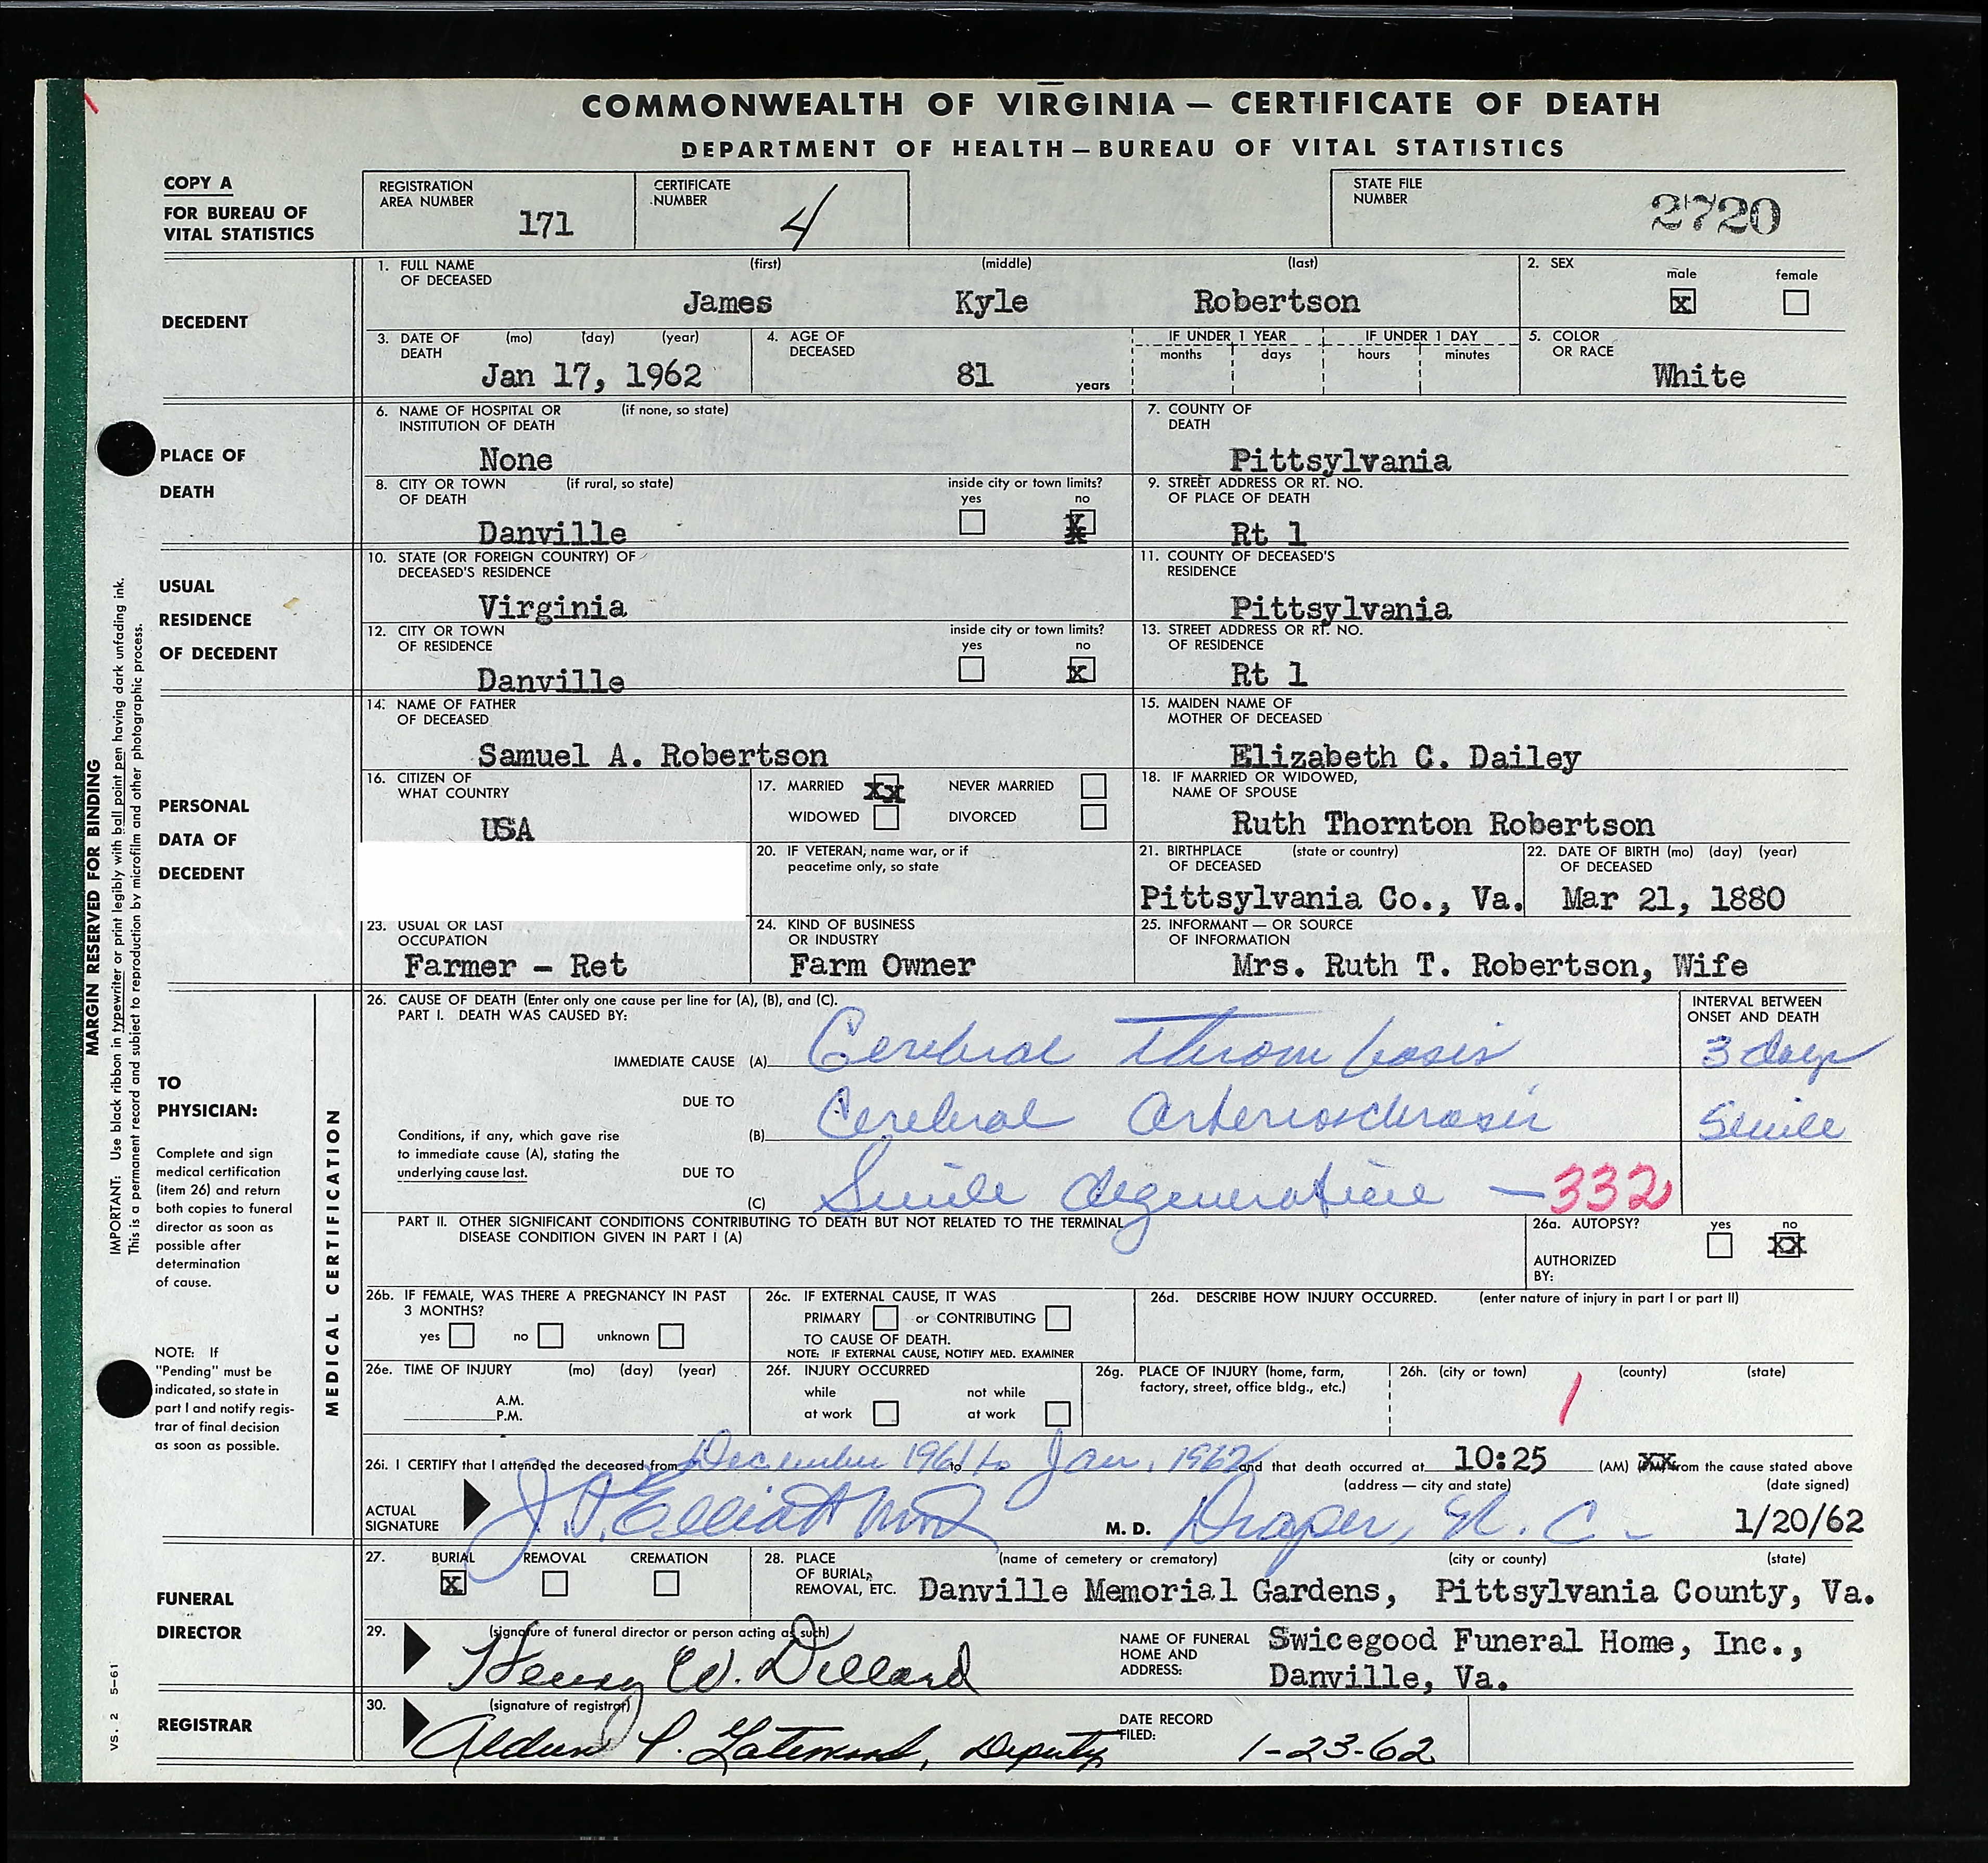 COMMONWEALTH OF VIRGINIA — CERTIFICATE OF DEATH
DEPARTMENT OF HEALTH — BUREAU OF VITAL STATISTICS
COPY A
FOR BUREAU OF
VITAL STATISTICS
REGISTRATION
AREA NUMBER
171
CERTIFICATE
NUMBER
4
STATE FILE
NUMBER
2720
DECEDENT
1. FULL NAME (first) (middle) (last)
OF DECEASED
James Kyle Robertson
2. SEX
male female
x
3. DATE OF (mo) (day) (year)
DEATH
Jan 17, 1962
4. AGE OF
DECEASED
81 years
IF UNDER 1 YEAR IF UNDER 1 DAY
months days hours minutes
5. COLOR
OR RACE
White
PLACE OF
DEATH
6. NAME OF HOSPITAL OR (if none, so state)
INSTITUTION OF DEATH
None
7. COUNTY OF
DEATH
Pittsylvania
8. CITY OR TOWN (if rural, so state) inside city or town limits?
OF DEATH yes no
Danville x
9. STREET ADDRESS OR RT. NO.
OF PLACE OF DEATH
Rt 1
USUAL
RESIDENCE
OF DECEDENT
10. STATE (OR FOREIGN COUNTRY) OF
DECEASED'S RESIDENCE
Virginia
11. COUNTY OF DECEASED'S
RESIDENCE
Pittsylvania
12. CITY OR TOWN inside city or town limits?
OF RESIDENCE yes no
Danville x
13. STREET ADDRESS OR RT. NO.
OF RESIDENCE
Rt 1
PERSONAL
DATA OF
DECEDENT
14. NAME OF FATHER
OF DECEASED
Samuel A. Robertson
15. MAIDEN NAME OF
MOTHER OF DECEASED
Elizabeth C. Dailey
16. CITIZEN OF
WHAT COUNTRY
USA
17. MARRIED xx NEVER MARRIED
WIDOWED DIVORCED
18. IF MARRIED OR WIDOWED,
NAME OF SPOUSE
Ruth Thornton Robertson
20. IF VETERAN, name war, or if
peacetime only, so state
21. BIRTHPLACE (state or country)
OF DECEASED
Pittsylvania Co., Va.
22. DATE OF BIRTH (mo) (day) (year)
OF DECEASED
Mar 21, 1880
23. USUAL OR LAST
OCCUPATION
Farmer - Ret
24. KIND OF BUSINESS
OR INDUSTRY
Farm Owner
25. INFORMANT — OR SOURCE
OF INFORMATION
Mrs. Ruth T. Robertson, Wife
MARGIN RESERVED FOR BINDING
IMPORTANT: Use black ribbon in typewriter or print legibly with ball point pen having dark unfading ink.
This is a permanent record and subject to reproduction by microfilm and other photographic process.
TO
PHYSICIAN:
Complete and sign
medical certification
(item 26) and return
both copies to funeral
director as soon as
possible after
determination
of cause.
NOTE: If
"Pending" must be
indicated, so state in
part I and notify regis-
trar of final decision
as soon as possible.
MEDICAL CERTIFICATION
26. CAUSE OF DEATH (Enter only one cause per line for (A), (B), and (C).
PART I. DEATH WAS CAUSED BY:
INTERVAL BETWEEN
ONSET AND DEATH
IMMEDIATE CAUSE (A) Cerebral Thrombosis 3 days
DUE TO
(B) Cerebral arteriosclerosis Senile
Conditions, if any, which gave rise
to immediate cause (A), stating the
underlying cause last.
DUE TO
(C) Senile degeneration — 332
PART II. OTHER SIGNIFICANT CONDITIONS CONTRIBUTING TO DEATH BUT NOT RELATED TO THE TERMINAL
DISEASE CONDITION GIVEN IN PART I (A)
26a. AUTOPSY? yes no
xx
AUTHORIZED
BY:
26b. IF FEMALE, WAS THERE A PREGNANCY IN PAST
3 MONTHS?
yes no unknown
26c. IF EXTERNAL CAUSE, IT WAS
PRIMARY or CONTRIBUTING
TO CAUSE OF DEATH.
NOTE: IF EXTERNAL CAUSE, NOTIFY MED. EXAMINER
26d. DESCRIBE HOW INJURY OCCURRED. (enter nature of injury in part I or part II)
26e. TIME OF INJURY (mo) (day) (year)
A.M.
P.M.
26f. INJURY OCCURRED
while not while
at work at work
26g. PLACE OF INJURY (home, farm,
factory, street, office bldg., etc.)
26h. (city or town) (county) (state)
1
26i. I CERTIFY that I attended the deceased from December 1961 to to Jan, 1962 and that death occurred at 10:25 (AM) (PM) from the cause stated above
(address — city and state) (date signed)
ACTUAL
SIGNATURE
J. A. Elliott MD M. D. Draper, N. C. 1/20/62
FUNERAL
DIRECTOR
27. BURIAL REMOVAL CREMATION
x
28. PLACE (name of cemetery or crematory) (city or county) (state)
OF BURIAL,
REMOVAL, ETC.
Danville Memorial Gardens, Pittsylvania County, Va.
29. (signature of funeral director or person acting as such)
Henry W. Dillard
NAME OF FUNERAL
HOME AND
ADDRESS:
Swicegood Funeral Home, Inc.,
Danville, Va.
REGISTRAR
30. (signature of registrar)
P. Gatewood, Deputy
DATE RECORD
FILED:
1-23-62
VS. 2 5-61